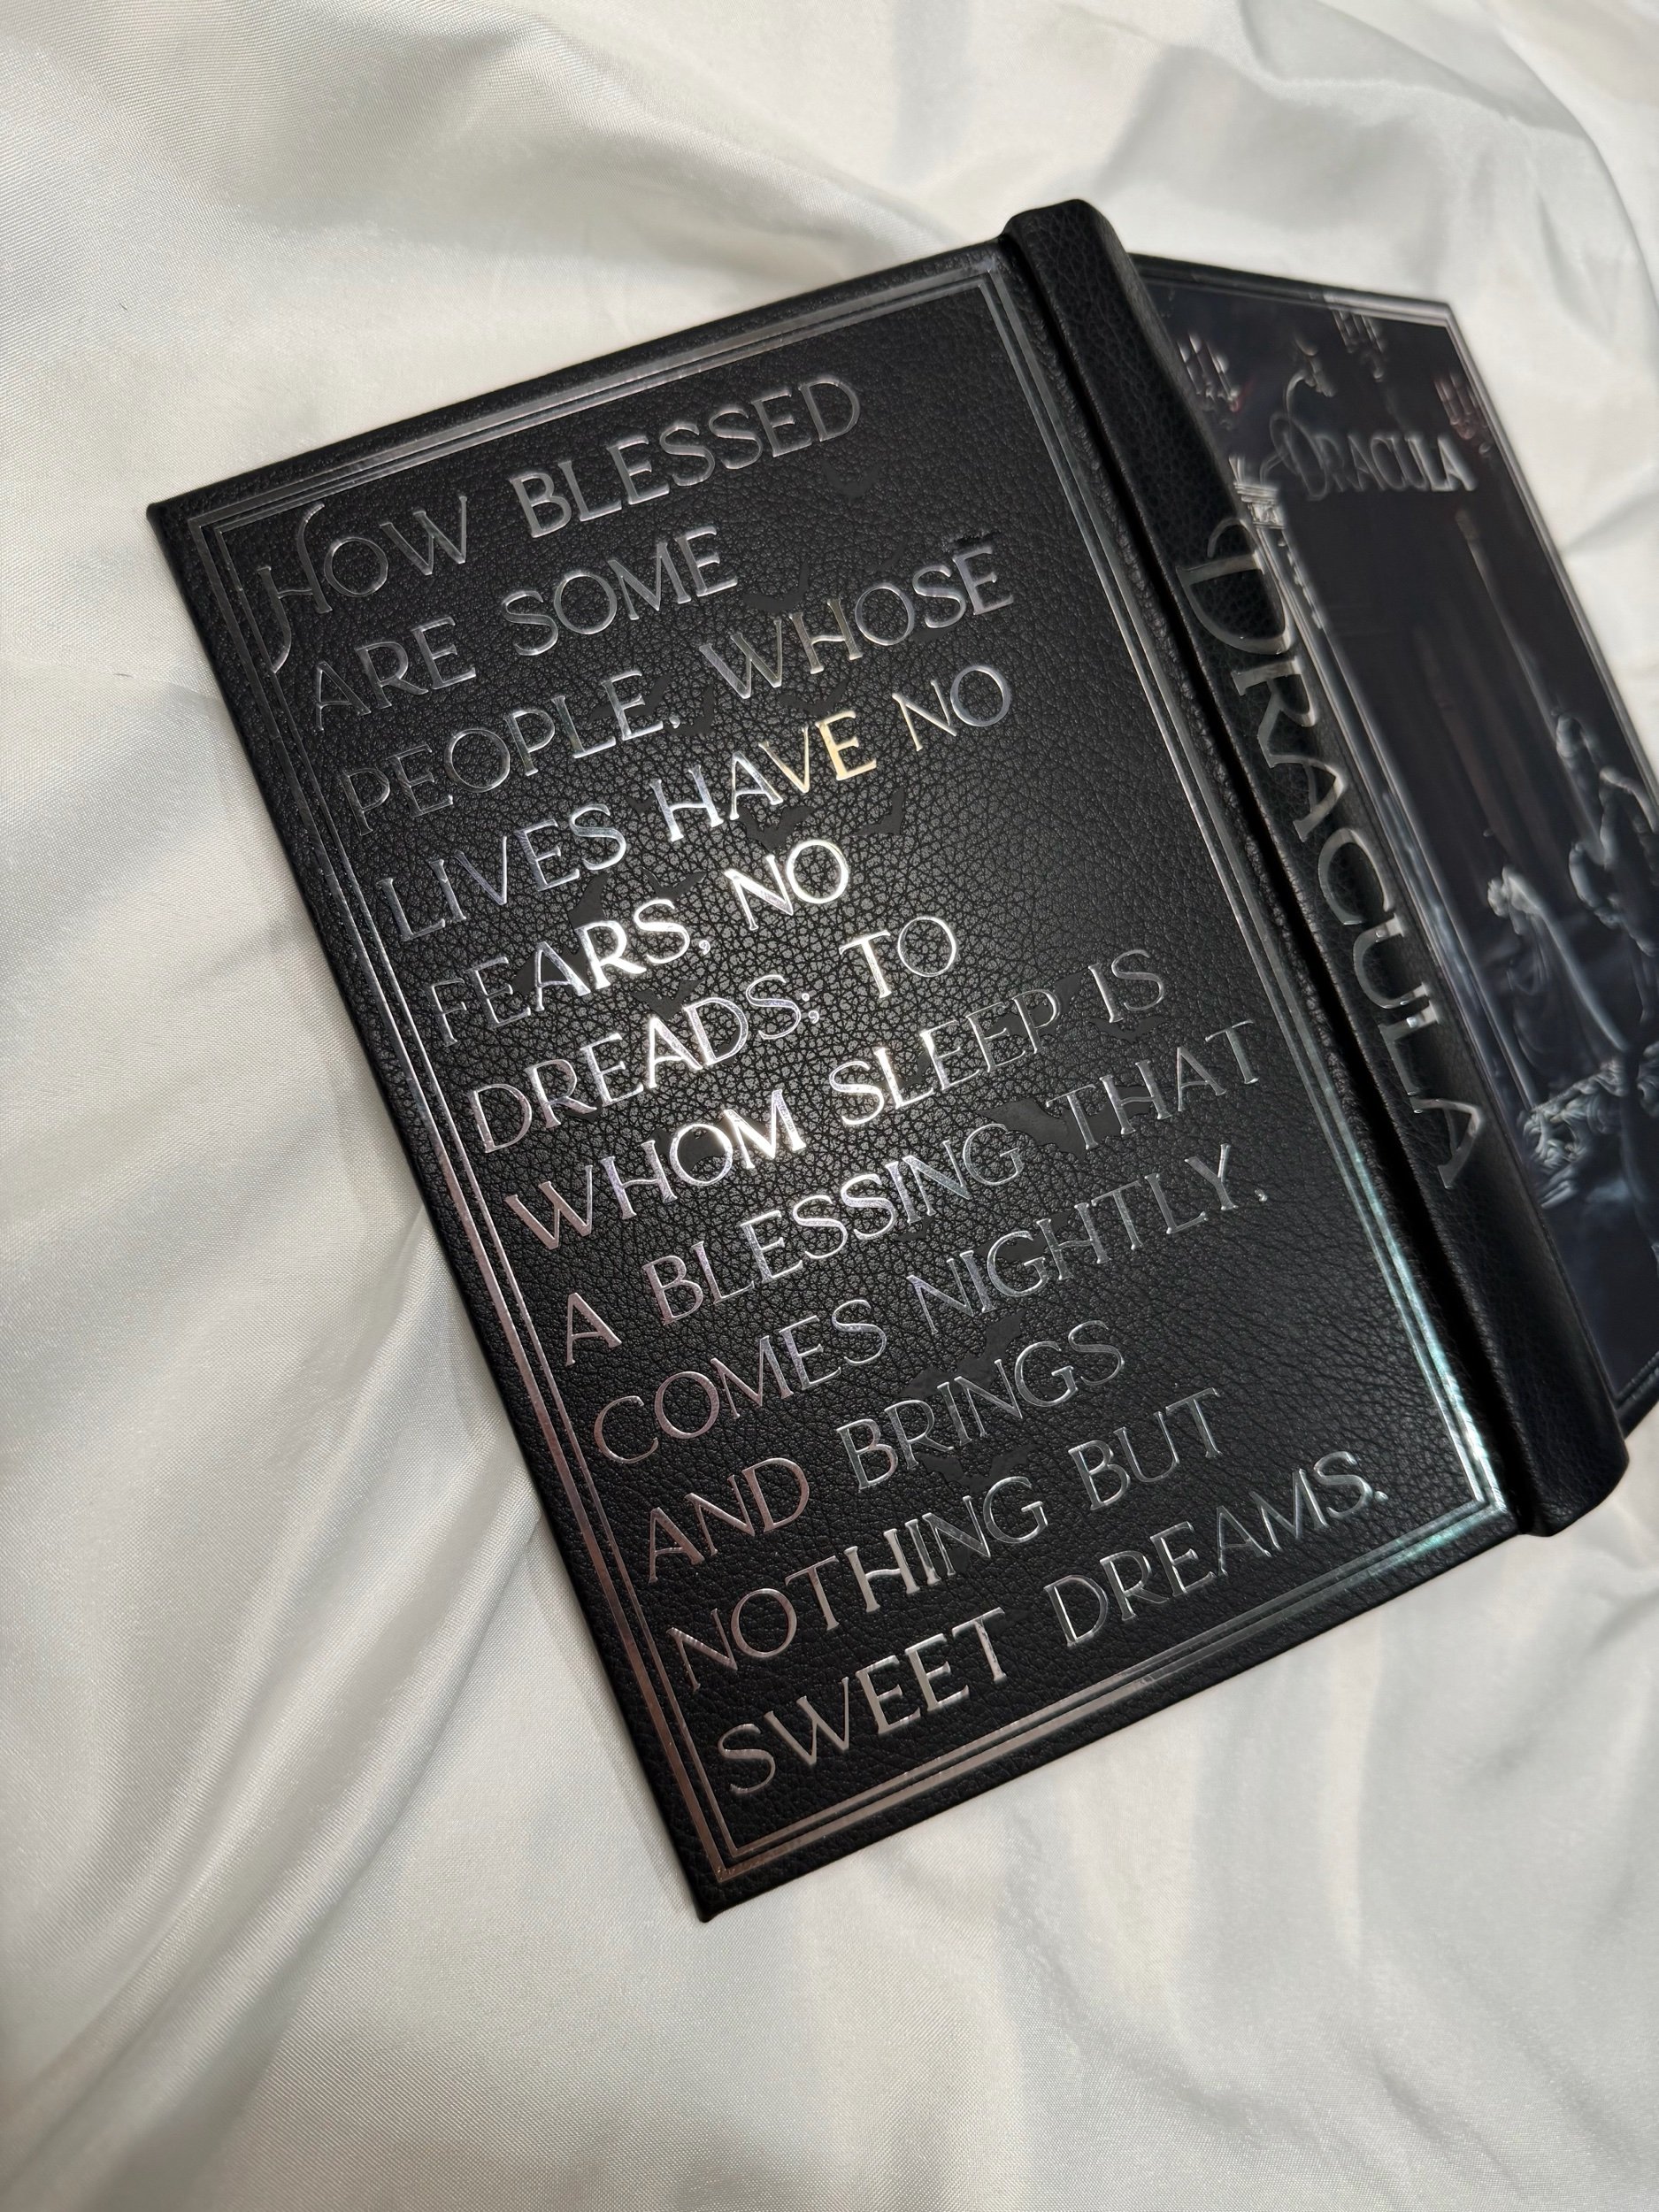 HOW BLESSED
ARE SOME
PEOPLE, WHOSE
LIVES HAVE NO
FEARS, NO
DREADS; TO
WHOM SLEEP IS
A BLESSING THAT
COMES NIGHTLY,
AND BRINGS
NOTHING BUT
SWEET DREAMS.
DRACULA
DRACULA